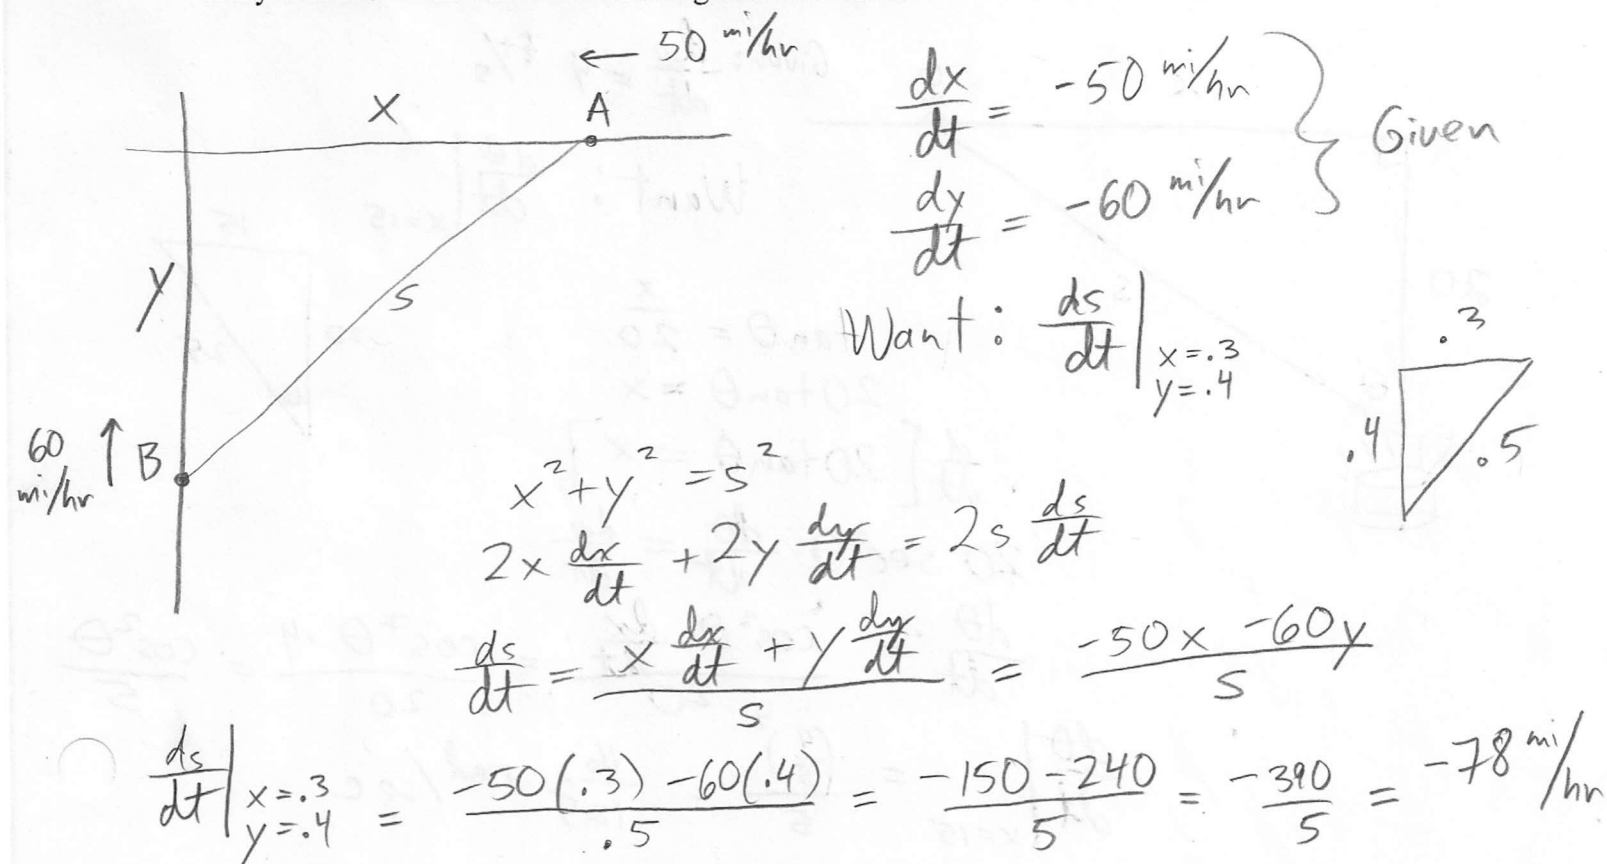 ← 50 mi/hr
x A
y
s
60 mi/hr ↑ B
dx/dt = -50 mi/hr
dy/dt = -60 mi/hr
} Given
Want: ds/dt | x=.3 y=.4
.3
.4 .5
x² + y² = s²
2x dx/dt + 2y dy/dt = 2s ds/dt
ds/dt = (x dx/dt + y dy/dt)/s = (-50x -60y)/s
ds/dt | x=.3 y=.4 = (-50(.3) -60(.4))/.5 = (-150-240)/5 = -390/5 = -78 mi/hr